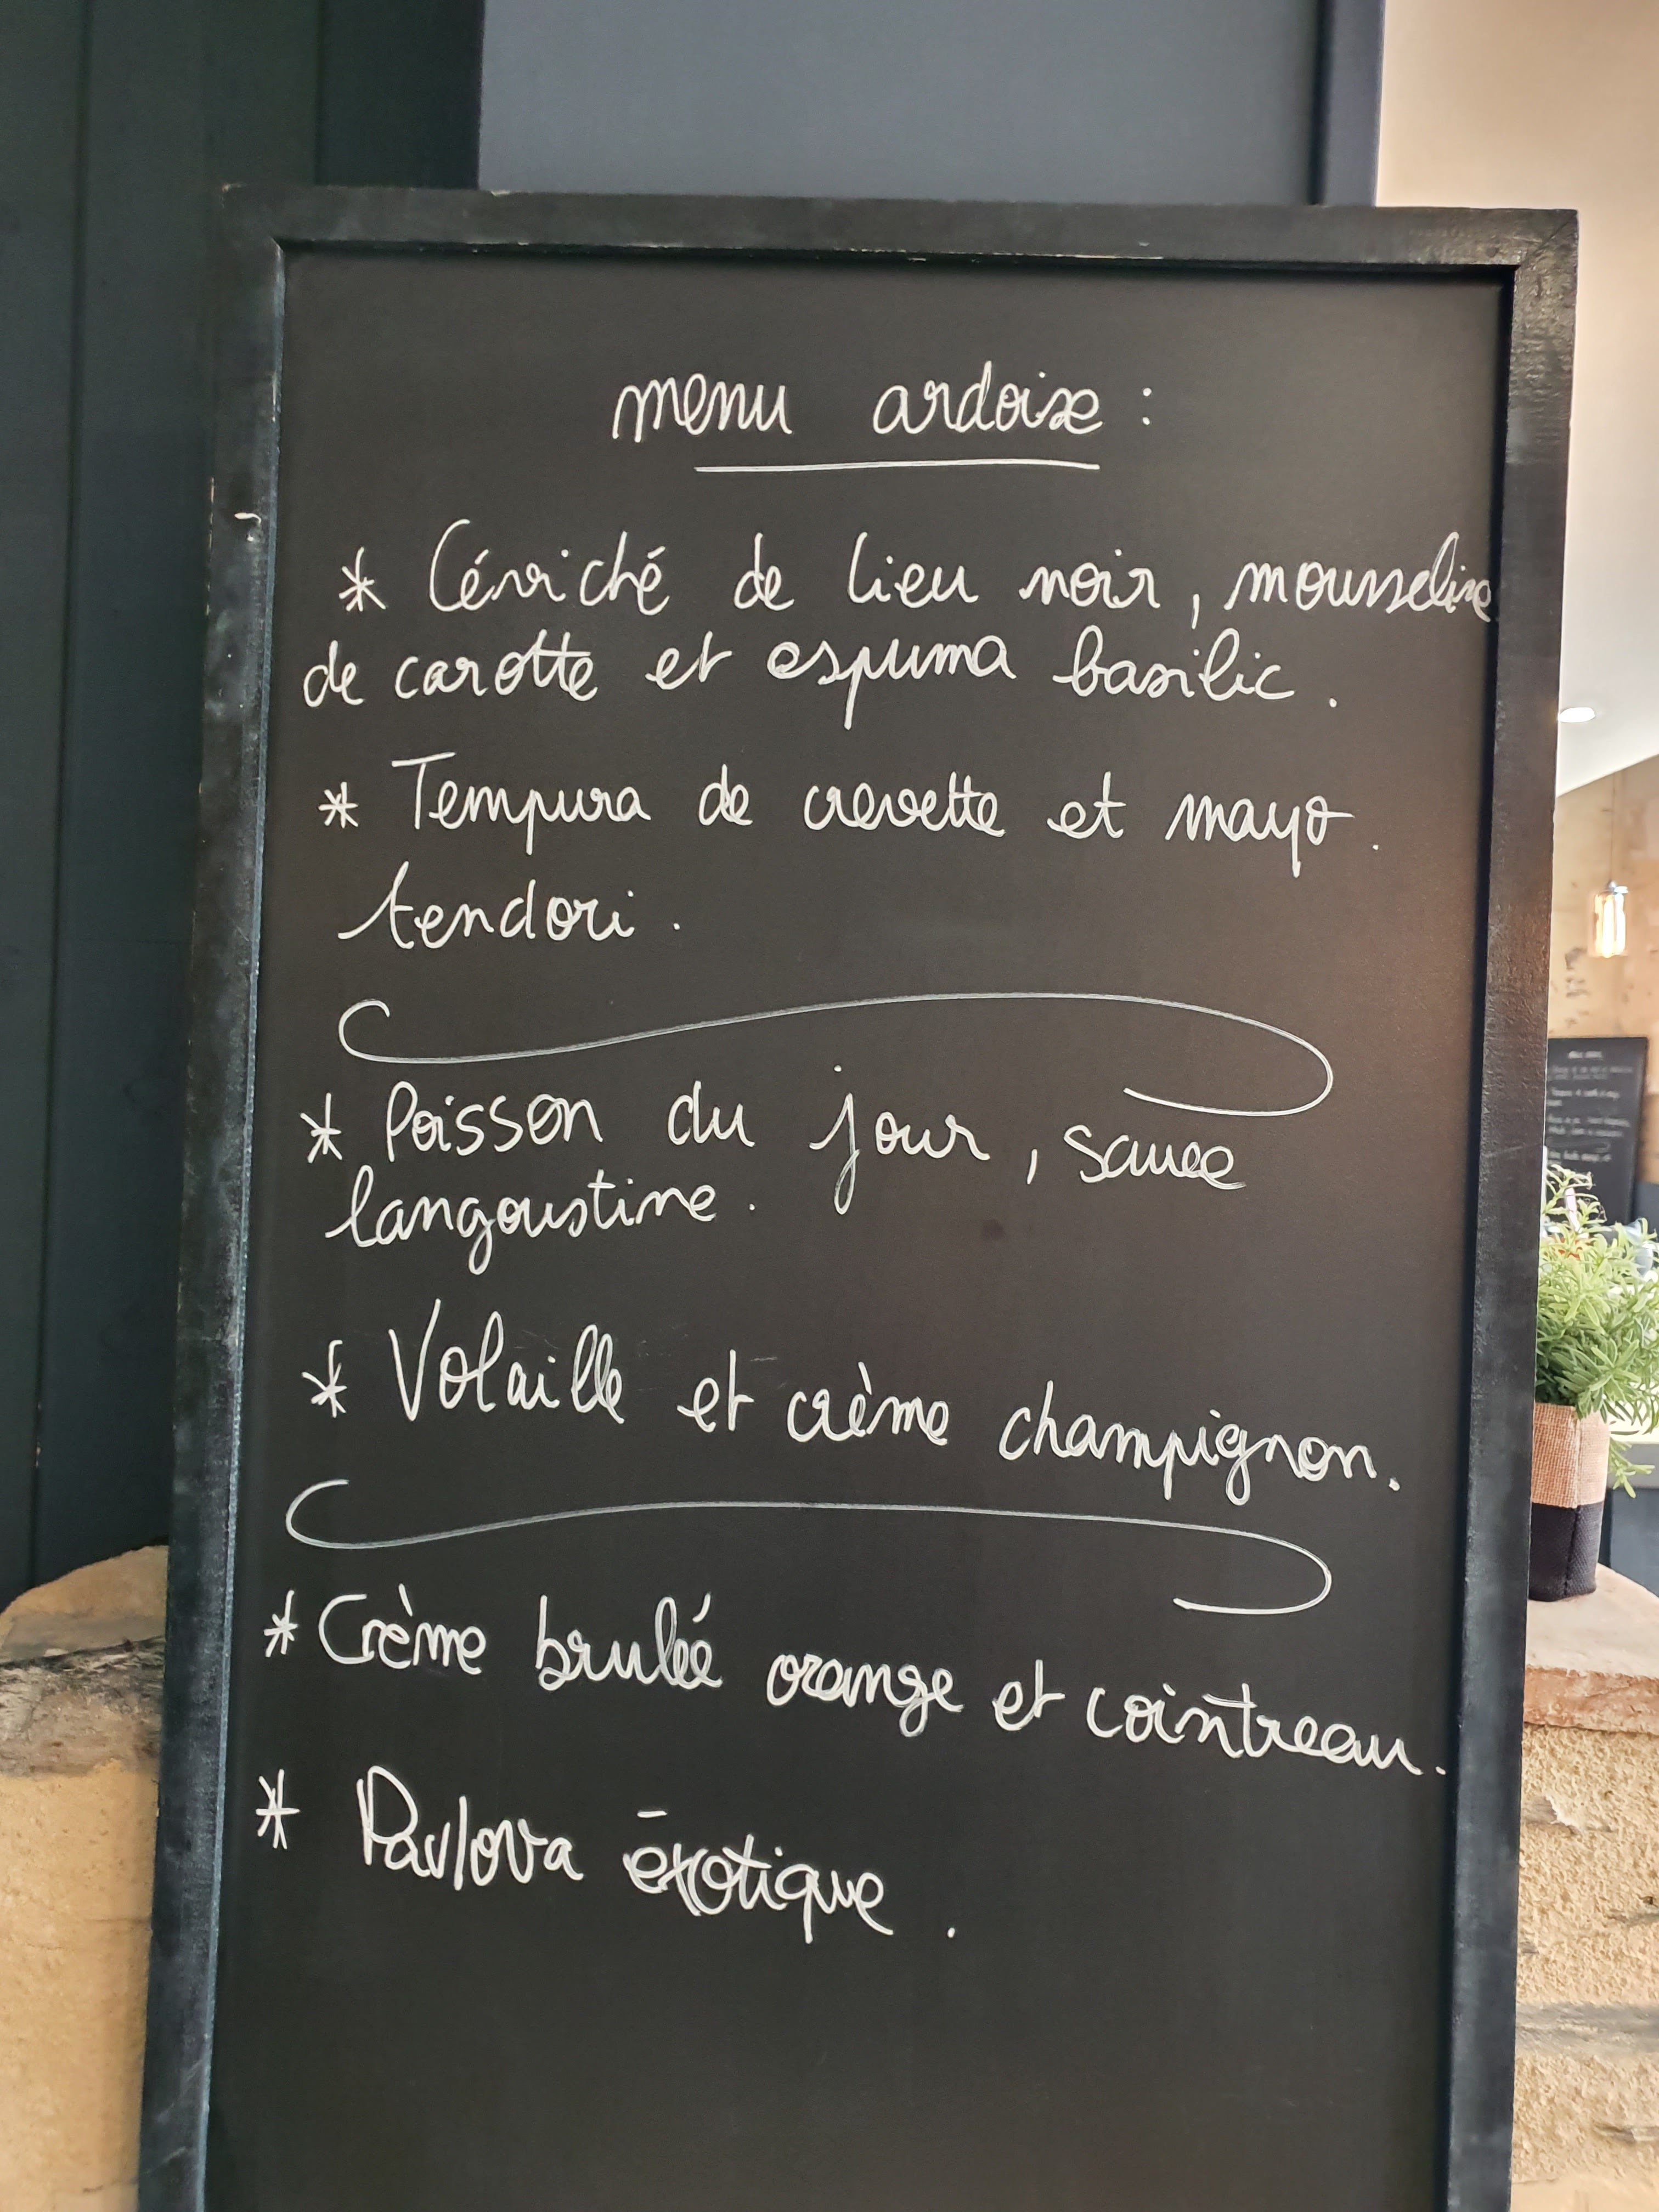 menu ardoise :
* Céviché de lieu noir, mousseline
de carotte et espuma basilic.
* Tempura de crevette et mayo.
tendori.
* Poisson du jour, sauce
langoustine.
* Volaille et crème champignon.
* Crème brulée orange et cointreau.
* Pavlova éxotique.